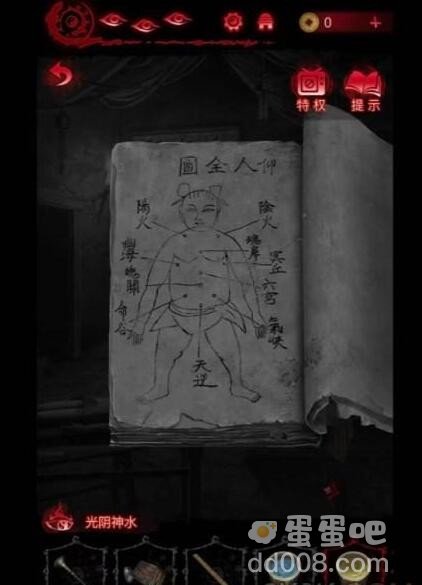 0
特权
提示
圖全人仰
陽火
陰火
魂岸
冥丘
六穹
魂關
命谷
氣峽
天逆
光阴神水
蛋蛋吧
dd008.com